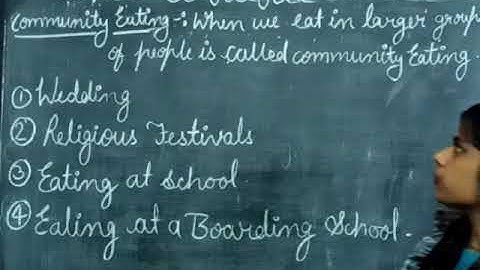 Community Eating-: When we eat in larger group
of people is called community Eating.
① Wedding
② Religious Festivals
③ Eating at school.
④ Eating at a Boarding School.